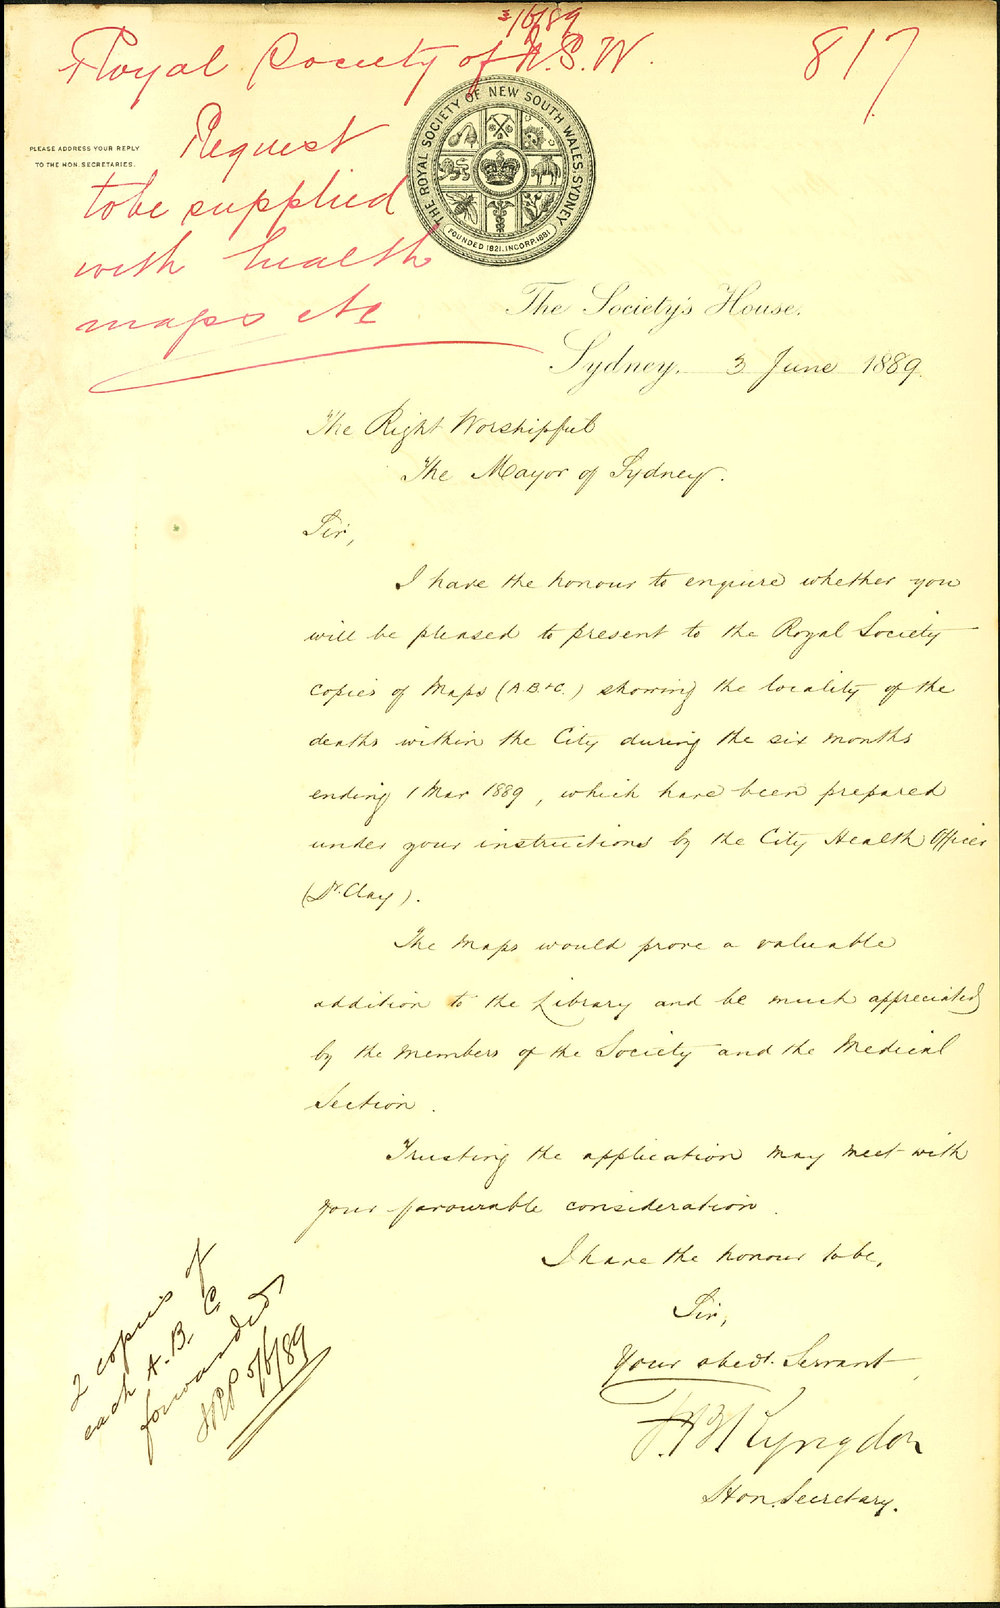 3/6/89
Royal Society of N.S.W. 817
Request
to be supplied
with health
maps etc
PLEASE ADDRESS YOUR REPLY
TO THE HON. SECRETARIES.
THE ROYAL SOCIETY OF NEW SOUTH WALES. SYDNEY
FOUNDED 1821. INCORP. 1881
The Society's House,
Sydney, 3 June 1889.
The Right Worshipful
The Mayor of Sydney.
Sir,
I have the honour to enquire whether you
will be pleased to present to the Royal Society
copies of Maps (A.B.+C.) showing the locality of the
deaths within the City during the six months
ending 1 Mar 1889, which have been prepared
under your instructions by the City Health Officer
(Dr. Clay).
The Maps would prove a valuable
addition to the Library and be much appreciated
by the members of the Society and the Medical
Section.
Trusting the application may meet with
your favourable consideration.
I have the honour to be,
Sir,
Your obedt. Servant,
Kyngdon
Hon. Secretary.
2 copies of
each A. B. C.
forwarded
5/6/89